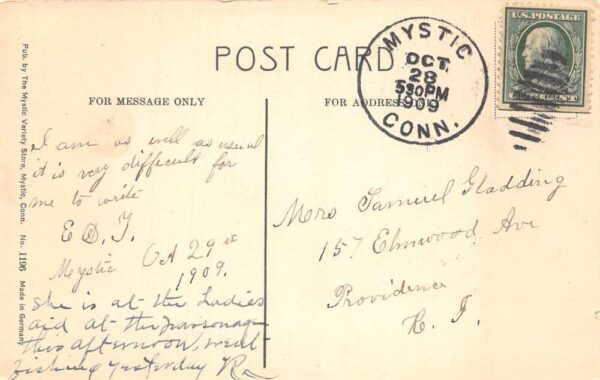 POST CARD
FOR MESSAGE ONLY
FOR ADDRESS ONLY
MYSTIC
OCT.
28
530PM
1909
CONN.
U.S. POSTAGE
Pub. by The Mystic Variety Store, Mystic, Conn. No. 1196 Made in Germany
I am as well as usual
it is very difficult for
me to write
E D. T.
Mystic Oct 29
1909.
She is at the Ladies
aid at the parsonage
this afternoon, went
fishing yesterday
Mrs Samuel Gladding
157 Elmwood Ave
Providence
R. I.